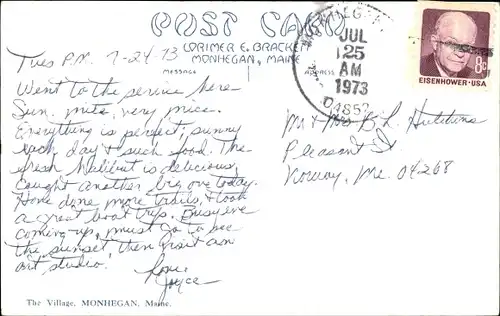 POST CARD
LORIMER E. BRACKETT
MONHEGAN, MAINE
MESSAGE
ADDRESS
MONHEGAN
JUL
25
AM
1973
04852
EISENHOWER·USA
8c
Tues P.M. 7-24-73
Went to the service here
Sun. nite, very nice.
Everything is perfect, sunny
each day & such food. The
fresh halibut is delicious,
caught another big one today.
Have done more trails, & took
a great boat trip. Busy eve
coming-up, must go to see
the sunset, then visit an
art studio.
Love
Joyce
Mr & Mrs B. L. Hutchins
Pleasant St
Norway, Me. 04268
The Village, MONHEGAN, Maine.